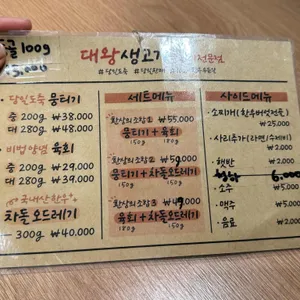 골 100g
대왕생고기 전문점
#당일도축
· 당일도축 뭉티기
중 200g ₩38.000
대 280g ₩48.000
· 비법양념 육회
중 200g ₩29.000
대 280g ₩39.000
국내산한우
차돌오드레기
300g ₩40.000
세트메뉴
· 환상의조합① ₩55.000
뭉티기 + 육회
150g 150g
· 환상의조합②
뭉티기+차돌오드레기
150g 180g
· 환상의조합③
육회+차돌오드레기
150g 180g
사이드메뉴
· 소찌개(한우버섯전골)
₩25.000
· 사리추가(라면/수제비)
₩2.000
· 햇반 ₩2.000
6.000
· 소주 ₩5.000
· 맥주 ₩5.000
· 음료 ₩2.000